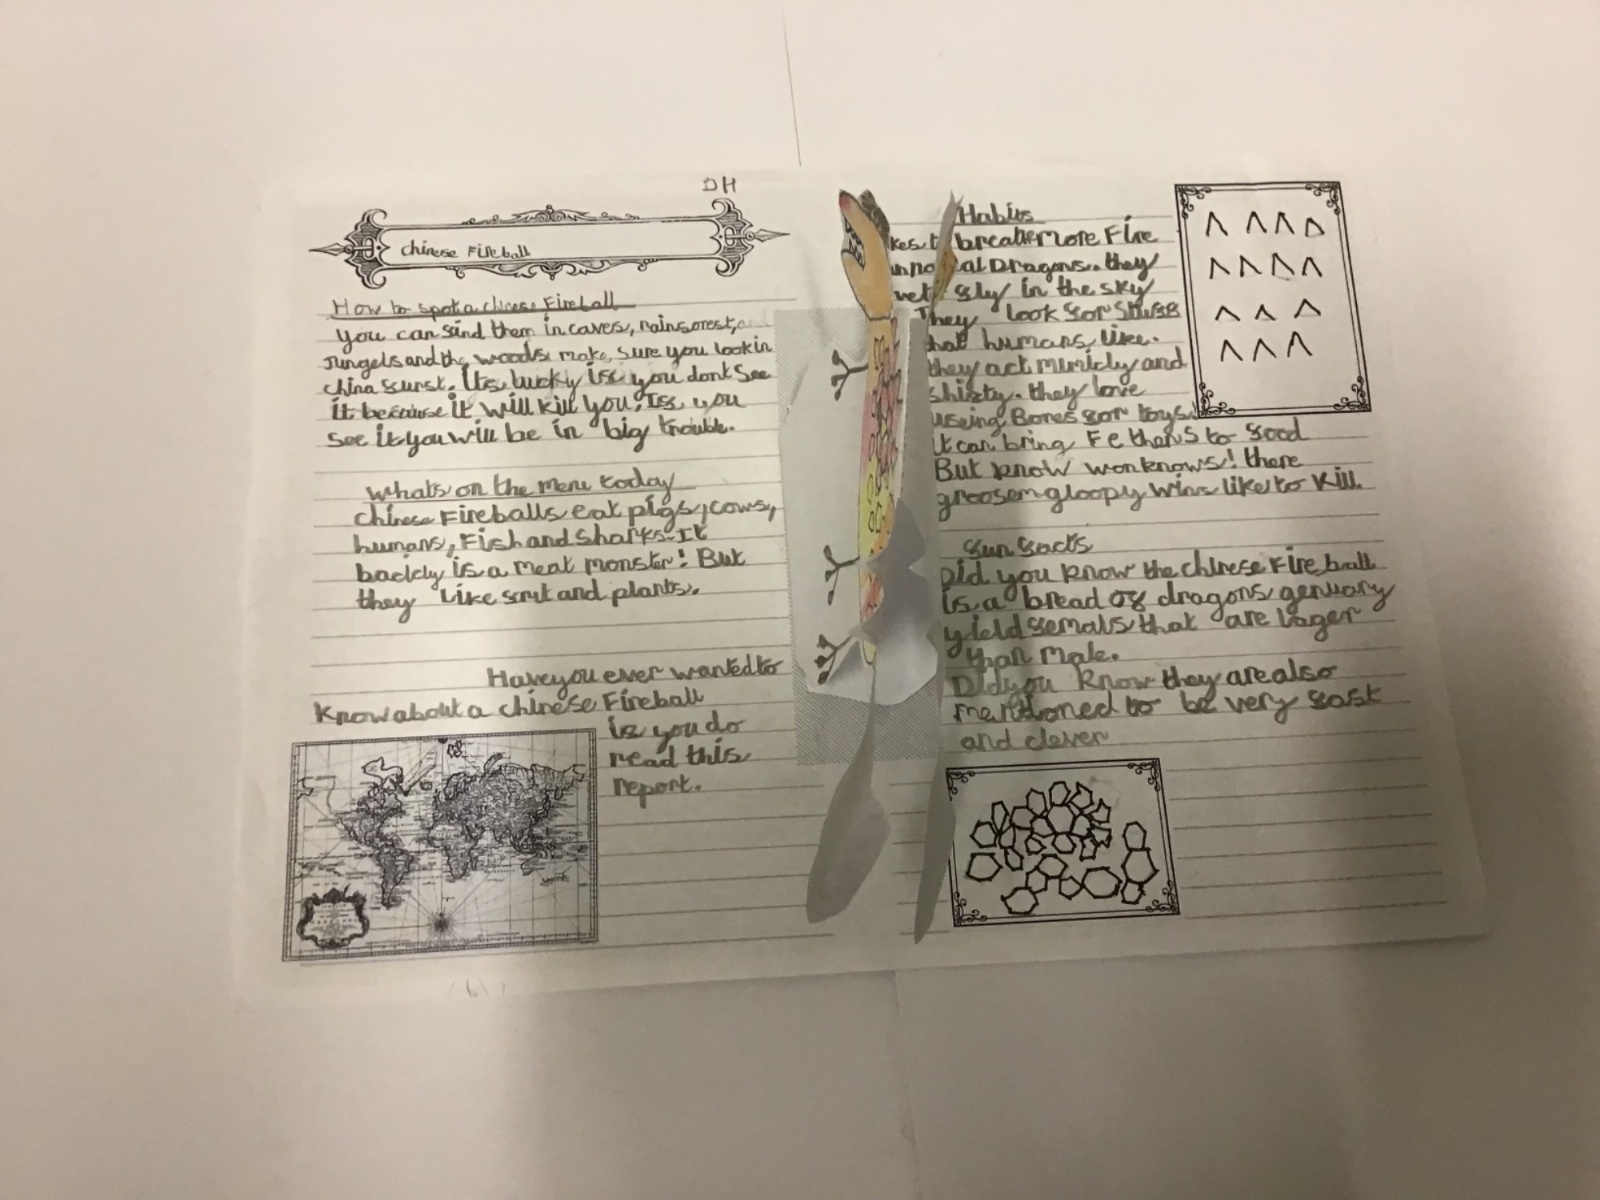 DH
Chinese Fireball
How to spot a chinese Fireball
You can find them in caves, rainforest, and
Jungels and the woods. make, sure you look in
china furst. Its lucky if you dont see
it because it will kill you, If, you
see it you will be in big trouble.
whats on the menu today
chinese Fireballs eat pigs, cows,
humans, Fish and sharks. It
backly is a meat monster! But
they like frut and plants.
Have you ever wanted to
know about a chinese Fireball
if you do
read this
report.
Habits
kes to breathe more Fire
Dragons. they
fly in the sky
They look for stuff
that humans, like.
they act mimicly and
shifty. they love
useing Bones for toys.
it can bring Fethers to food
But know won knows! there
groosem gloopy wins like to kill.
fun facts
Did you know the chinese Fireball
is a bread of dragons genuary
yield femals that are lager
than male.
Did you know they are also
mentioned to be very fast
and clever